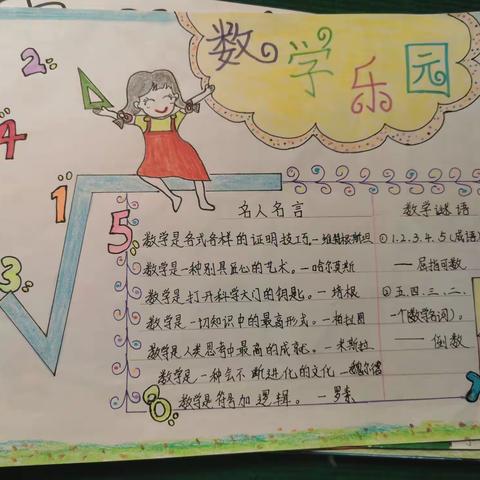 数学乐园
2
4
1
5
3
8
7
名人名言
数学是各式各样的证明技巧。—维特根斯坦
数学是一种别具匠心的艺术。—哈尔莫斯
数学是打开科学大门的钥匙。—培根
数学是一切知识中的最高形式。—柏拉图
数学是人类思考中最高的成就。—米斯拉
数学是一种会不断进化的文化—魏尔德
数学是符号加逻辑。—罗素
数学谜语
①1.2.3.4.5(成语)
—屈指可数
②五.四.三.二.
一个(数学名词)。
—倒数